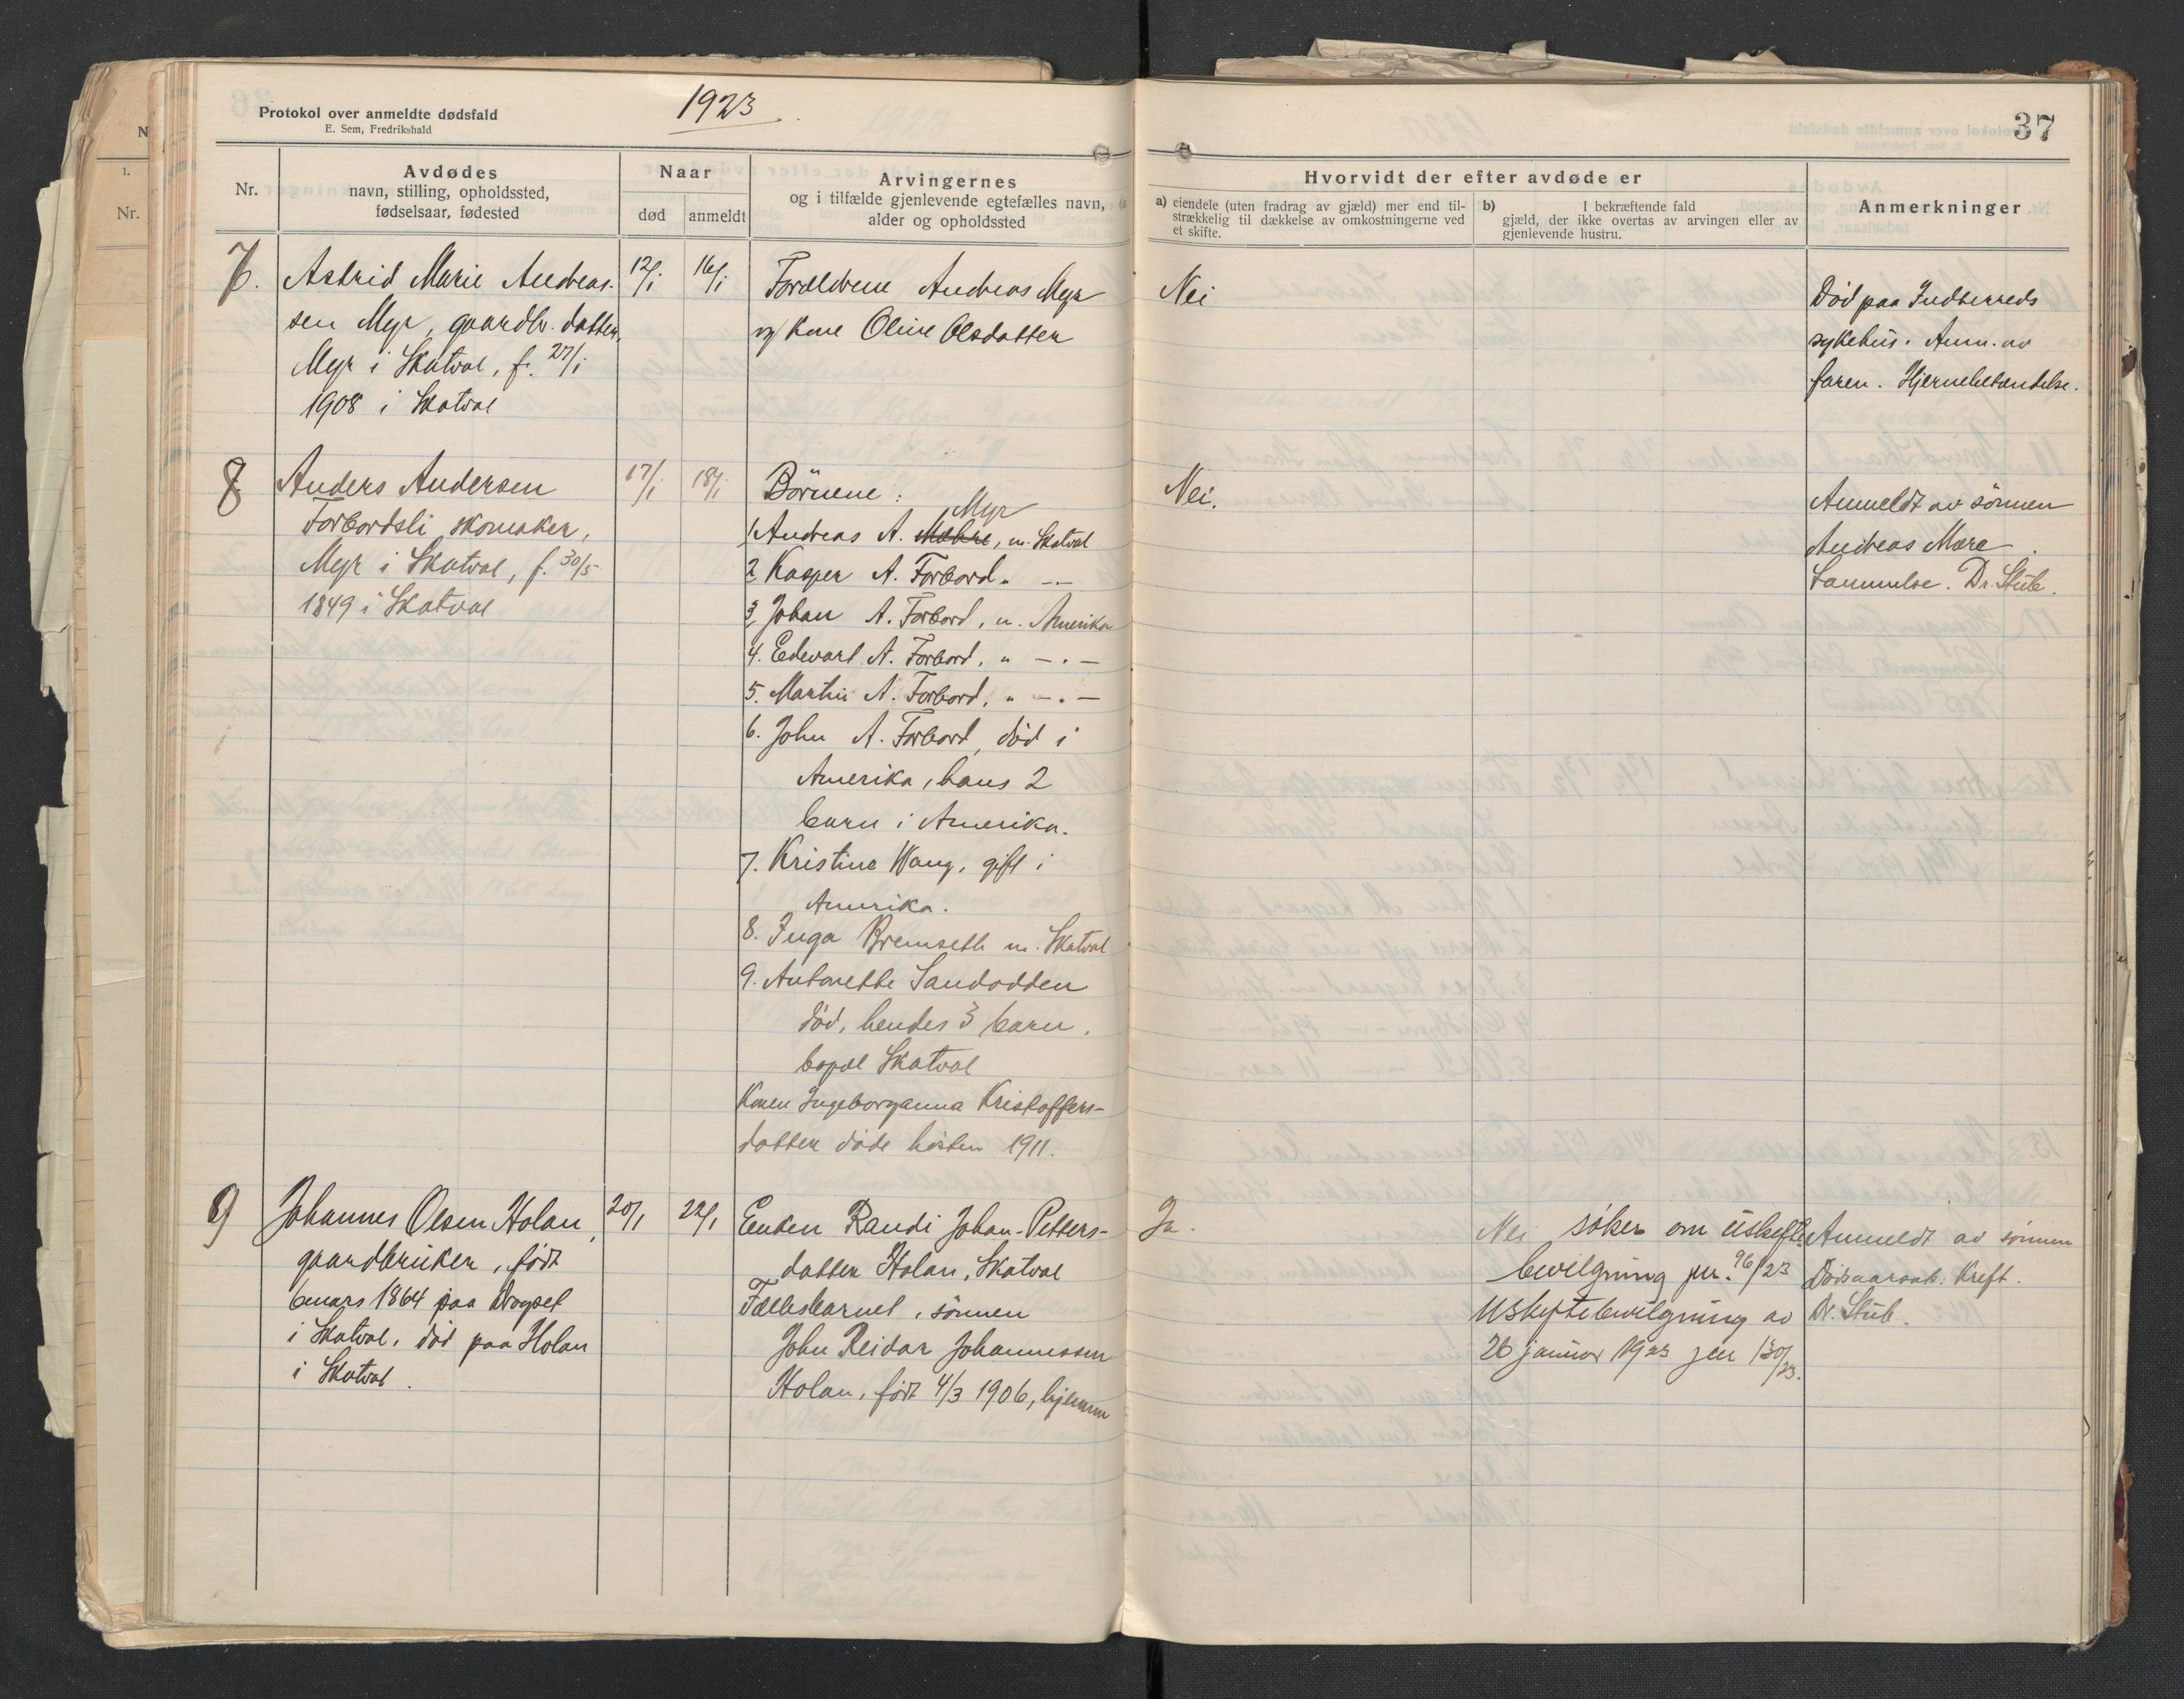 Protokol over anmeldte dødsfald
E. Sem, Fredrikshald
1923
37
Nr.
Avdødes
navn, stilling, opholdssted,
fødselsaar, fødested
Naar
død
anmeldt
Arvingernes
og i tilfælde gjenlevende egtefælles navn,
alder og opholdssted
Hvorvidt der efter avdøde er
a) eiendele (uten fradrag av gjæld) mer end til-
strækkelig til dækkelse av omkostningerne ved
et skifte.
b) I bekræftende fald
gjæld, der ikke overtas av arvingen eller av
gjenlevende hustru.
Anmerkninger
7.
Astrid Marie Andreas-
sen Myr, gaardbr. datter,
Myr i Skatval, f. 27/1
1908 i Skatval
12/1
16/1
Forældrene Andreas Myr
og kone Oline Olsdatter
Nei
Død paa Indherreds
sykehus. Anm. av
faren. Hjernebetændelse.
8
Anders Andersen
Forbordsli skomaker,
Myr i Skatval, f. 30/5
1849 i Skatval
17/1
18/1
Börnene:
Myr
1 Andreas A. Mære, m. Skatval
2 Kasper A. Forbord " -"-
3, Johan A. Forbord, m. Amerika
4. Edevart A. Forbord, " -"-
5. Martin A. Forbord, " -"-
6. John A. Forbord, död i
Amerika, hans 2
barn i Amerika.
7. Kristine Wang, gift i
Amerika.
8. Inga Bremseth m. Skatval
9. Antonette Sandodden
död, hendes 3 barn,
bopæl Skatval
Konen Ingeborganna Kristoffers-
datter döde hösten 1911.
Nei.
Anmeldt av sönnen
Andreas Mære.
Lammelse. Dr. Stub.
9
Johannes Olsen Holan,
gaardbruker, født
6 mars 1864 paa
i Skatval, död paa Holan
i Skatval.
20/1
22/1
Enken Randi Johan-Petters-
datter Holan, Skatval
Fællesbarnet, sönnen
John Reidar Johannessen
Holan, født 4/3 1906, hjemme
Ja.
Nei søker om uskifte
bevilgning jnr. 96/23
Uskiftebevilgning av
26 januar 1923 jnr 130/23.
Anmeldt av sönnen
Dödsaarsak: Kreft.
Dr. Stub.